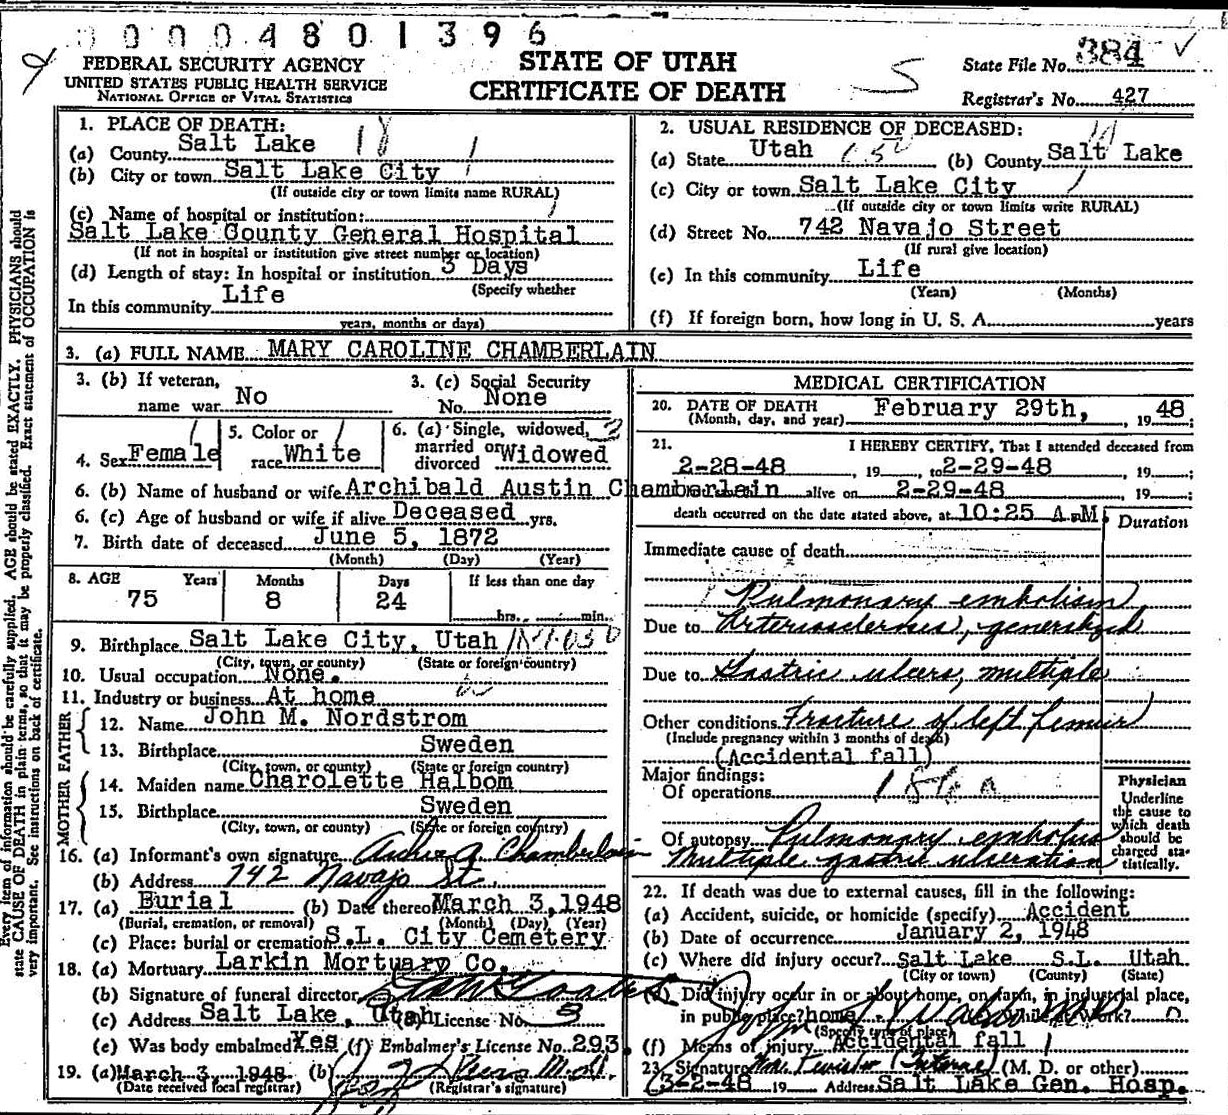 0000480 1396
FEDERAL SECURITY AGENCY
UNITED STATES PUBLIC HEALTH SERVICE
NATIONAL OFFICE OF VITAL STATISTICS
STATE OF UTAH
CERTIFICATE OF DEATH
5
State File No. 384 ✓
Registrar's No. 427
Every item of information should be carefully supplied. AGE should be stated EXACTLY. PHYSICIANS should
state CAUSE OF DEATH in plain terms, so that it may be properly classified. Exact statement of OCCUPATION is
very important. See instructions on back of certificate.
1. PLACE OF DEATH:
(a) County Salt Lake 18 1
(b) City or town Salt Lake City 1
(If outside city or town limits name RURAL)
(c) Name of hospital or institution:
Salt Lake County General Hospital
(If not in hospital or institution give street number or location)
(d) Length of stay: In hospital or institution 3 Days
(Specify whether
In this community Life
years, months or days)
2. USUAL RESIDENCE OF DECEASED:
(a) State Utah (b) County Salt Lake
(c) City or town Salt Lake City
(If outside city or town limits write RURAL)
(d) Street No. 742 Navajo Street
(If rural give location)
(e) In this community Life
(Years) (Months)
(f) If foreign born, how long in U. S. A. years
3. (a) FULL NAME MARY CAROLINE CHAMBERLAIN
3. (b) If veteran,
name war No
3. (c) Social Security
No. None
4. Sex Female
5. Color or
race White
6. (a) Single, widowed,
married or
divorced Widowed
6. (b) Name of husband or wife Archibald Austin Chamberlain
6. (c) Age of husband or wife if alive Deceased yrs.
7. Birth date of deceased June 5, 1872
(Month) (Day) (Year)
8. AGE Years Months Days If less than one day
75 8 24 hrs. min.
9. Birthplace Salt Lake City, Utah
(City, town, or county) (State or foreign country)
10. Usual occupation None.
11. Industry or business At home
FATHER
12. Name John M. Nordstrom
13. Birthplace Sweden
(City, town, or county) (State or foreign country)
MOTHER
14. Maiden name Charolette Halbom
15. Birthplace Sweden
(City, town, or county) (State or foreign country)
16. (a) Informant's own signature A. Chamberlain
(b) Address 742 Navajo St.
17. (a) Burial (b) Date thereof March 3, 1948
(Burial, cremation, or removal) (Month) (Day) (Year)
(c) Place: burial or cremation S.L. City Cemetery
18. (a) Mortuary Larkin Mortuary Co.
(b) Signature of funeral director
(c) Address Salt Lake, Utah (d) License No. 3
(e) Was body embalmed Yes (f) Embalmer's License No. 293.
19. (a) March 3, 1948 (b)
(Date received local registrar) (Registrar's signature)
MEDICAL CERTIFICATION
20. DATE OF DEATH February 29th, , 19 48
(Month, day, and year)
21. I HEREBY CERTIFY, That I attended deceased from
2-28-48 , 19 , to 2-29-48 , 19 ;
alive on 2-29-48 , 19 ;
death occurred on the date stated above, at 10:25 A.M. Duration
Immediate cause of death
Pulmonary embolism
Due to Arteriosclerosis, generalized
Due to Gastric ulcers, multiple
Other conditions Fracture of left femur
(Include pregnancy within 3 months of death)
(Accidental fall)
Major findings:
Of operations
Of autopsy Pulmonary embolus
Multiple gastric ulceration
Physician
Underline
the cause to
which death
should be
charged sta-
tistically.
22. If death was due to external causes, fill in the following:
(a) Accident, suicide, or homicide (specify) Accident
(b) Date of occurrence January 2, 1948
(c) Where did injury occur? Salt Lake S.L. Utah
(City or town) (County) (State)
(d) Did injury occur in or about home, on farm, in industrial place,
in public place? home While at work?
(Specify type of place)
(f) Means of injury Accidental fall
23. Signature (M. D. or other)
3-2-48 19 Address Salt Lake Gen. Hosp.